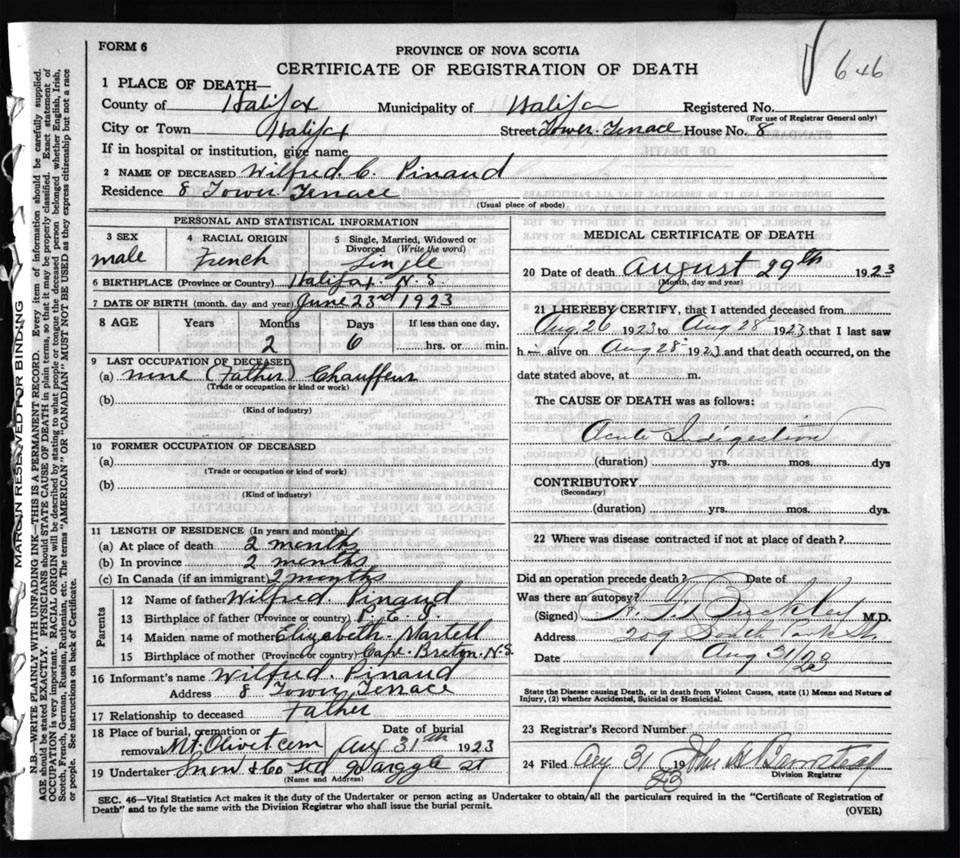 FORM 6
PROVINCE OF NOVA SCOTIA
CERTIFICATE OF REGISTRATION OF DEATH
646
1 PLACE OF DEATH—
County of Halifax Municipality of Halifax Registered No.
(For use of Registrar General only)
City or Town Halifax Street Tower Terrace House No. 8
If in hospital or institution, give name
2 NAME OF DECEASED Wilfred. C. Pinaud
Residence 8 Tower Terrace
(Usual place of abode)
PERSONAL AND STATISTICAL INFORMATION
3 SEX 4 RACIAL ORIGIN 5 Single, Married, Widowed or Divorced (Write the word)
male French Single
6 BIRTHPLACE (Province or Country) Halifax. N.S.
7 DATE OF BIRTH (month, day and year) June 23rd 1923
8 AGE Years Months Days If less than one day,
2 6 hrs. or min.
9 LAST OCCUPATION OF DECEASED
(a) none (Father) Chauffeur
(Trade or occupation or kind or work)
(b)
(Kind of industry)
10 FORMER OCCUPATION OF DECEASED
(a)
(Trade or occupation or kind of work)
(b)
(Kind of industry)
11 LENGTH OF RESIDENCE (In years and months)
(a) At place of death 2 months
(b) In province 2 months
(c) In Canada (if an immigrant) 2 months
Parents
12 Name of father Wilfred. Pinaud
13 Birthplace of father (Province or country) P. E. I.
14 Maiden name of mother Elizabeth. Martell
15 Birthplace of mother (Province or country) Cape. Breton. N.S.
16 Informant's name Wilfred Pinaud
Address 8 Tower Terrace
17 Relationship to deceased Father
18 Place of burial, cremation or removal Mt. Olivet cem Date of burial Aug 31th 1923
19 Undertaker Snow & Co Ltd 90 argyle St
(Name and Address)
MEDICAL CERTIFICATE OF DEATH
20 Date of death August 29th 1923
(Month, day and year)
21 I HEREBY CERTIFY, that I attended deceased from
Aug 26 1923 to Aug 28 1923 that I last saw
h alive on Aug 28 1923 and that death occurred, on the
date stated above, at m.
The CAUSE OF DEATH was as follows:
Acute Indigestion
(duration) yrs. mos. dys
CONTRIBUTORY
(Secondary)
(duration) yrs. mos. dys.
22 Where was disease contracted if not at place of death?
Did an operation precede death? Date of
Was there an autopsy?
(Signed) Buckley M.D.
Address 209 South Park St
Date Aug 31/23
State the Disease causing Death, or in death from Violent Causes, state (1) Means and Nature of
Injury, (2) whether Accidental, Suicidal or Homicidal.
23 Registrar's Record Number
24 Filed Aug 31 19 23
Division Registrar
SEC. 46—Vital Statistics Act makes it the duty of the Undertaker or person acting as Undertaker to obtain all the particulars required in the "Certificate of Registration of
Death" and to fyle the same with the Division Registrar who shall issue the burial permit.
(OVER)
MARGIN RESERVED FOR BINDING
N.B.—WRITE PLAINLY WITH UNFADING INK—THIS IS A PERMANENT RECORD. Every item of information should be carefully supplied.
AGE should be stated EXACTLY. PHYSICIANS should STATE CAUSE OF DEATH in plain terms, so that it may be properly classified. Exact statement of
OCCUPATION is very important. RACIAL ORIGIN will be described by stating to what people or tongue the deceased person belonged whether English, Irish,
Scotch, French, German, Russian, Ruthenian, etc. The terms "AMERICAN" OR "CANADIAN" MUST NOT BE USED as they express citizenship but not a race
or people. See instructions on back of Certificate.